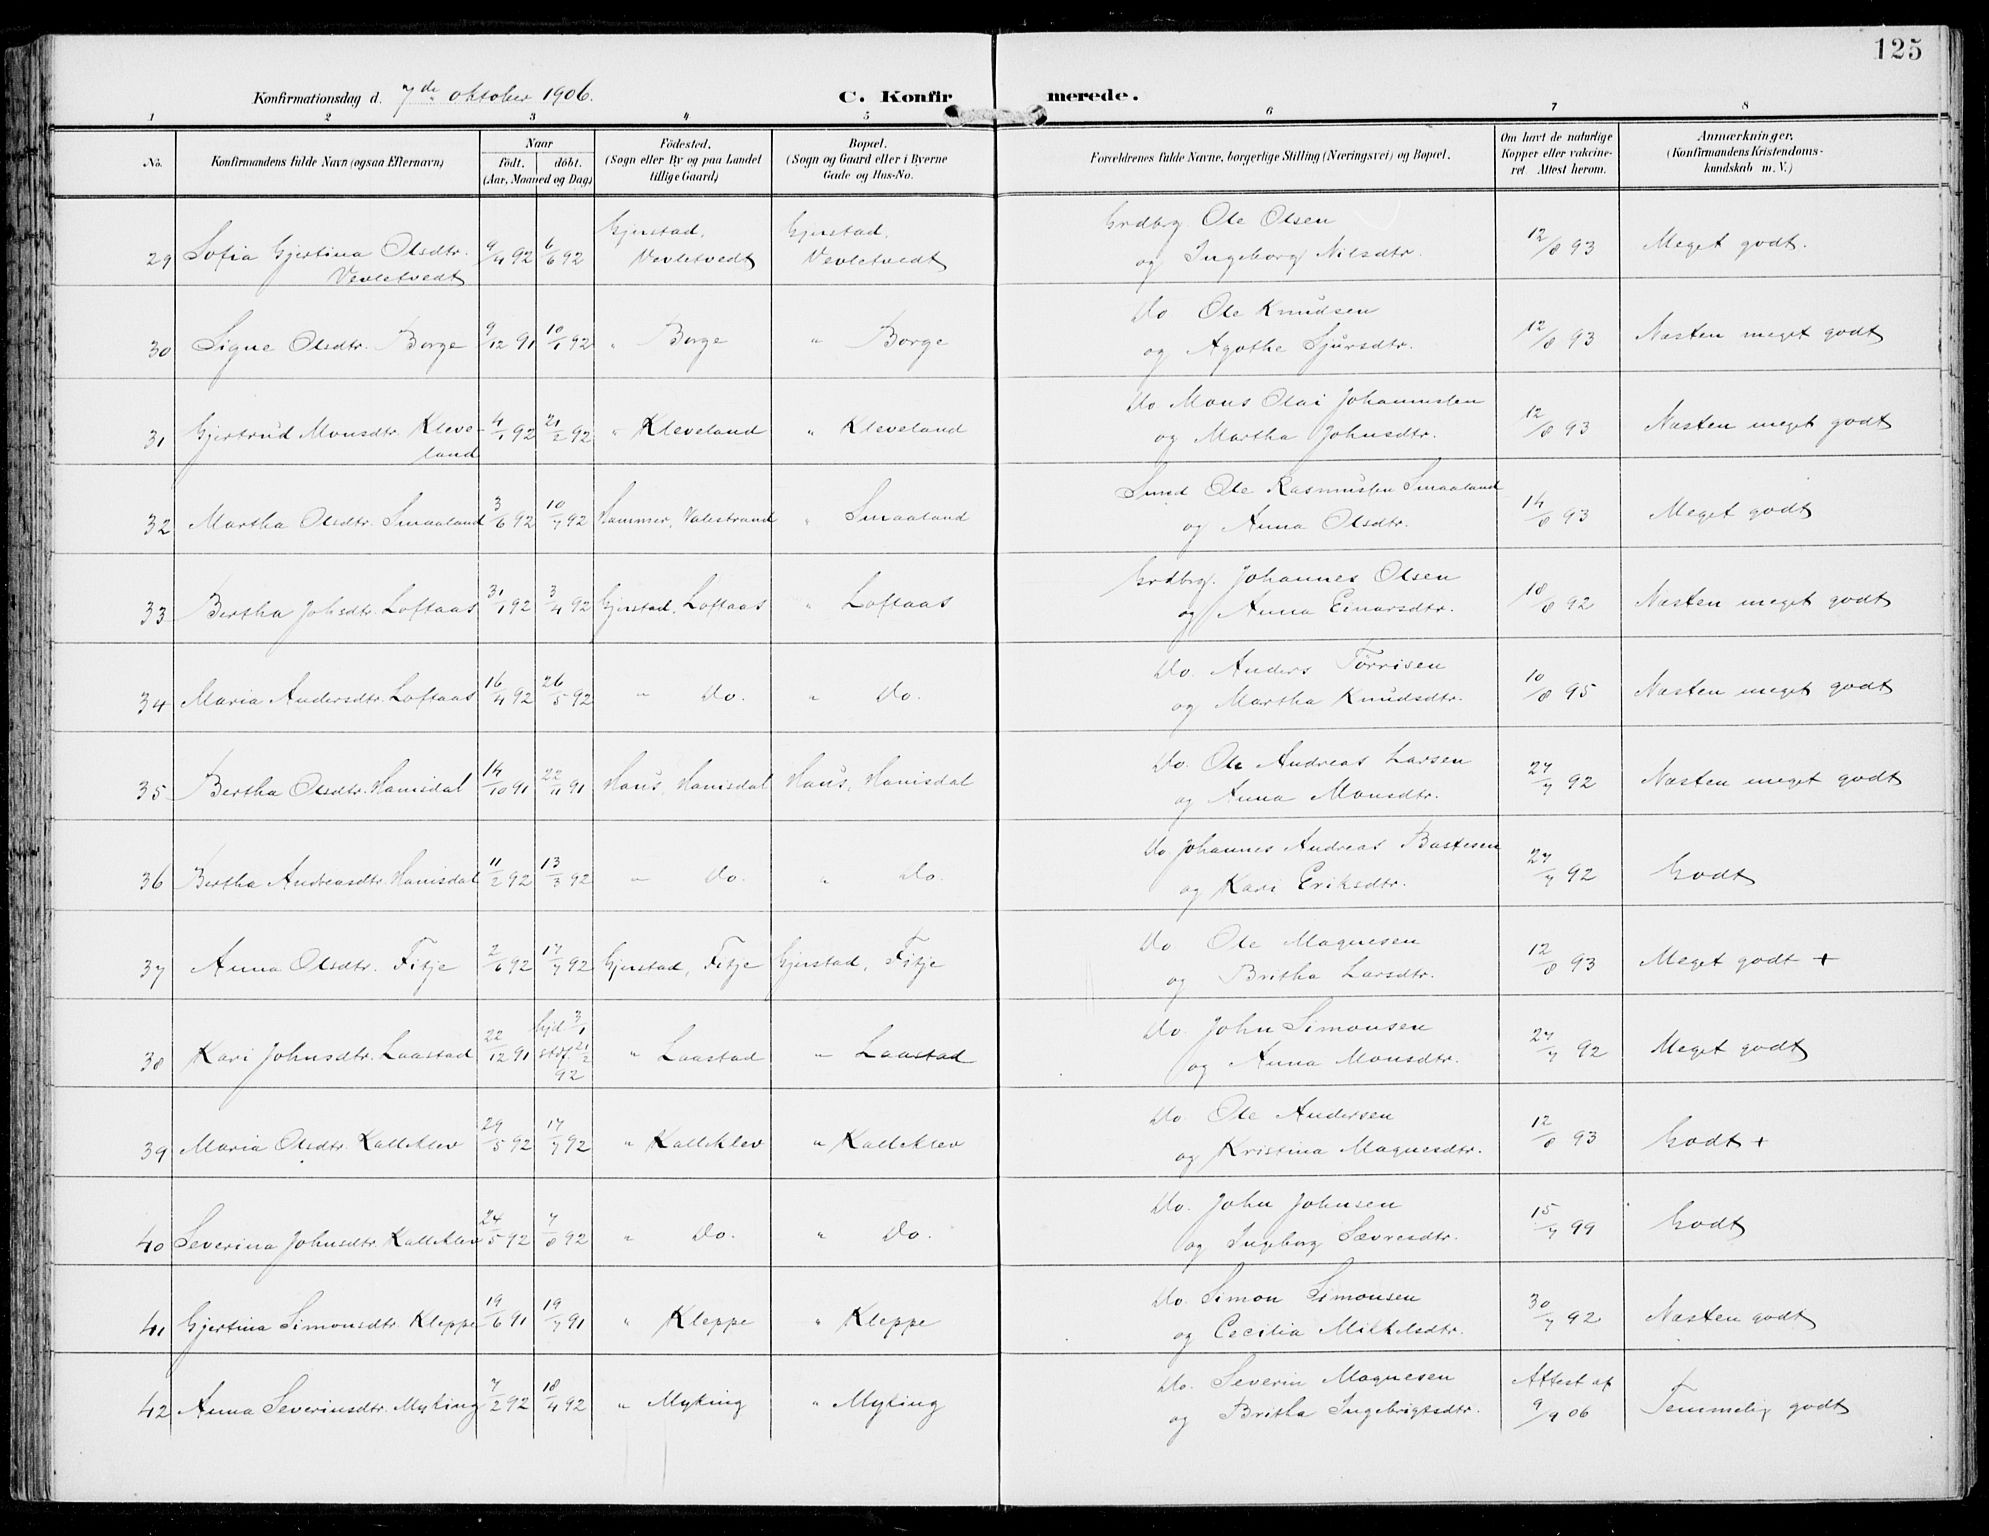 125
Konfirmationsdag d. 7de oktober 1906.
C. Konfirmerede.
1 2 3 4 5 6 7 8
No. Konfirmandens fulde Navn (ogsaa Efternavn) Naar født. døbt. (Aar, Maaned og Dag) Fødested. (Sogn eller By og paa Landet tillige Gaard) Bopæl. (Sogn og Gaard eller i Byerne Gade og Hus-No. Forældrenes fulde Navne, borgerlige Stilling (Næringsvei) og Bopæl. Om havt de naturlige Kopper eller vakcineret. Attest herom. Anmærkninger. (Konfirmandens Kristendomskundskab m. V.)
29 Sofia Gjertina Olsdtr. Vevletvedt 9/4 92 6/6 92 Gjerstad, Vevletvedt Gjerstad, Vevletvedt Grdbrg. Ole Olsen og Ingeborg Nilsdtr. 12/8 93 Meget godt.
30 Signe Olsdtr. Borge 9/12 91 10/1 92 " Borge " Borge Do Ole Knudsen og Agathe Sjursdtr. 12/8 93 Næsten meget godt
31 Gjertrud Monsdtr. Kleveland 4/1 92 21/2 92 " Kleveland " Kleveland Do Mons Olai Johannessen og Martha Johnsdtr. 12/8 93 Næsten meget godt
32 Martha Olsdtr. Smaaland 3/6 92 10/7 92 Hammer, Valestrand " Smaaland Smed Ole Rasmussen Smaaland og Anna Olsdtr. 14/8 93 Meget godt
33 Bertha Johsdtr. Loftaas 31/1 92 3/4 92 Gjerstad, Loftaas " Loftaas Grdbrg. Johannes Olsen og Anna Einarsdtr. 18/8 92 Næsten meget godt
34 Maria Andersdtr. Loftaas 16/4 92 26/5 92 " Do. " Do. Do. Anders Tørrisen og Martha Knudsdtr. 10/8 95 Næsten meget godt
35 Bertha Olsdtr. Hanisdal 14/10 91 22/11 91 Haus, Hanisdal Haus, Hanisdal Do. Ole Andreas Larsen og Anna Monsdtr. 27/7 92 Næsten meget godt
36 Bertha Andreasdtr. Hanisdal 11/2 92 13/3 92 " Do. " Do. Do. Johannes Andreas Bastesen og Kari Eriksdtr. 27/7 92 Godt
37 Anna Olsdtr. Fitje 2/6 92 17/7 92 Gjerstad, Fitje Gjerstad, Fitje Do Ole Magnesen og Britha Larsdtr. 12/8 93 Meget godt +
38 Kari Johnsdtr. Laastad 22/12 91 hjd 3/1 stdf. 21/2 92 " Laastad " Laastad Do. John Simonsen og Anna Monsdtr. 27/7 92 Meget godt
39 Maria Olsdtr. Kalleklev 29/5 92 17/7 92 " Kalleklev " Kalleklev Do Ole Andersen og Kristina Magnesdtr. 12/8 93 Godt +
40 Severina Johnsdtr. Kalleklev 24/5 92 7/8 92 " Do. " Do. Do. John Johnsen og Ingeborg Sævresdtr. 15/7 99 Godt
41 Gjertina Simonsdtr. Kleppe 19/6 91 19/7 91 " Kleppe " Kleppe Do. Simon Simonsen og Cecilia Mikkelsdtr. 30/7 92 Næsten godt
42 Anna Severinsdtr. Myking 7/2 92 18/4 92 " Myking " Myking Do. Severin Magnesen og Britha Ingebrigtsdtr. Attest af 9/9 06 Temmelig godt